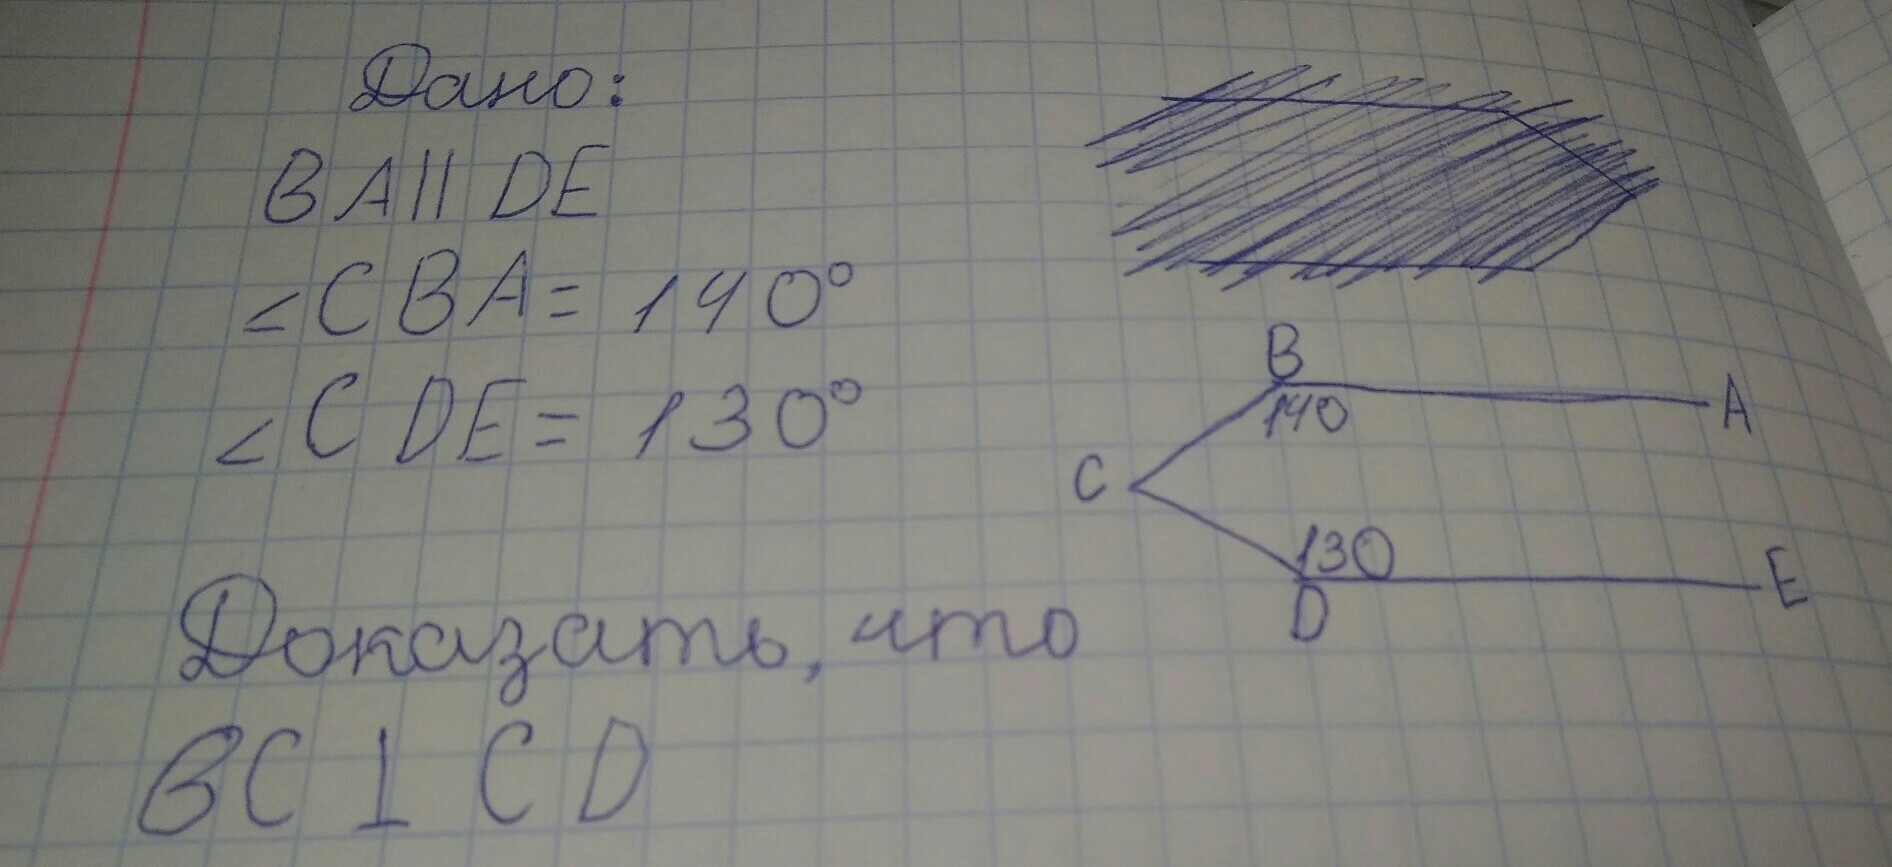 Дано:
BA || DE
∠CBA = 140°
∠CDE = 130°
Доказать, что
BC ⊥ CD
B
A
140
C
130
D
E